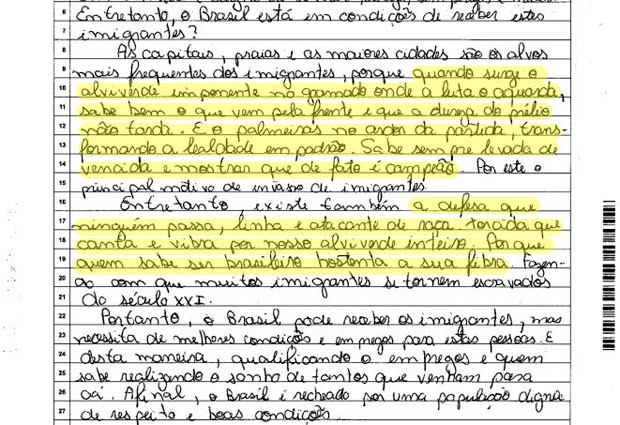 6 Entretanto, o Brasil está em condições de receber estes
7 imigrantes?
8 As capitais, praias e as maiores cidades são os alvos
9 mais frequentes dos imigrantes, porque quando surge o
10 alviverde imponente no gramado onde a luta o aguarda,
11 sabe bem o que vem pela frente e que a dureza do prélio
12 não tarda. E o palmeiras no ardor da partida, trans-
13 formando a lealdade em padrão. Sabe sempre levada de
14 vencida e mostrar que de fato é campeão. Por este o
15 principal motivo de invasão de imigrantes.
16 Entretanto, existe também a defesa que
17 ninguém passa, linha e atacante de raça. torcida que
18 canta e vibra por nosso alviverde inteiro. Por que
19 quem sabe ser brasileiro hostenta a sua fibra fazen-
20 do com que muitos imigrantes se tornem escravados
21 do século XXI.
22 Portanto, o Brasil pode receber os imigrantes, mas
23 necessita de melhores condições e empregos para estas pessoas. E
24 desta maneira, qualificando o empregos e quem
25 sabe realizando o sonho de tantos que venham para
26 cá. Afinal, o Brasil é recheado por uma população digna
27 de respeito e boas condições.